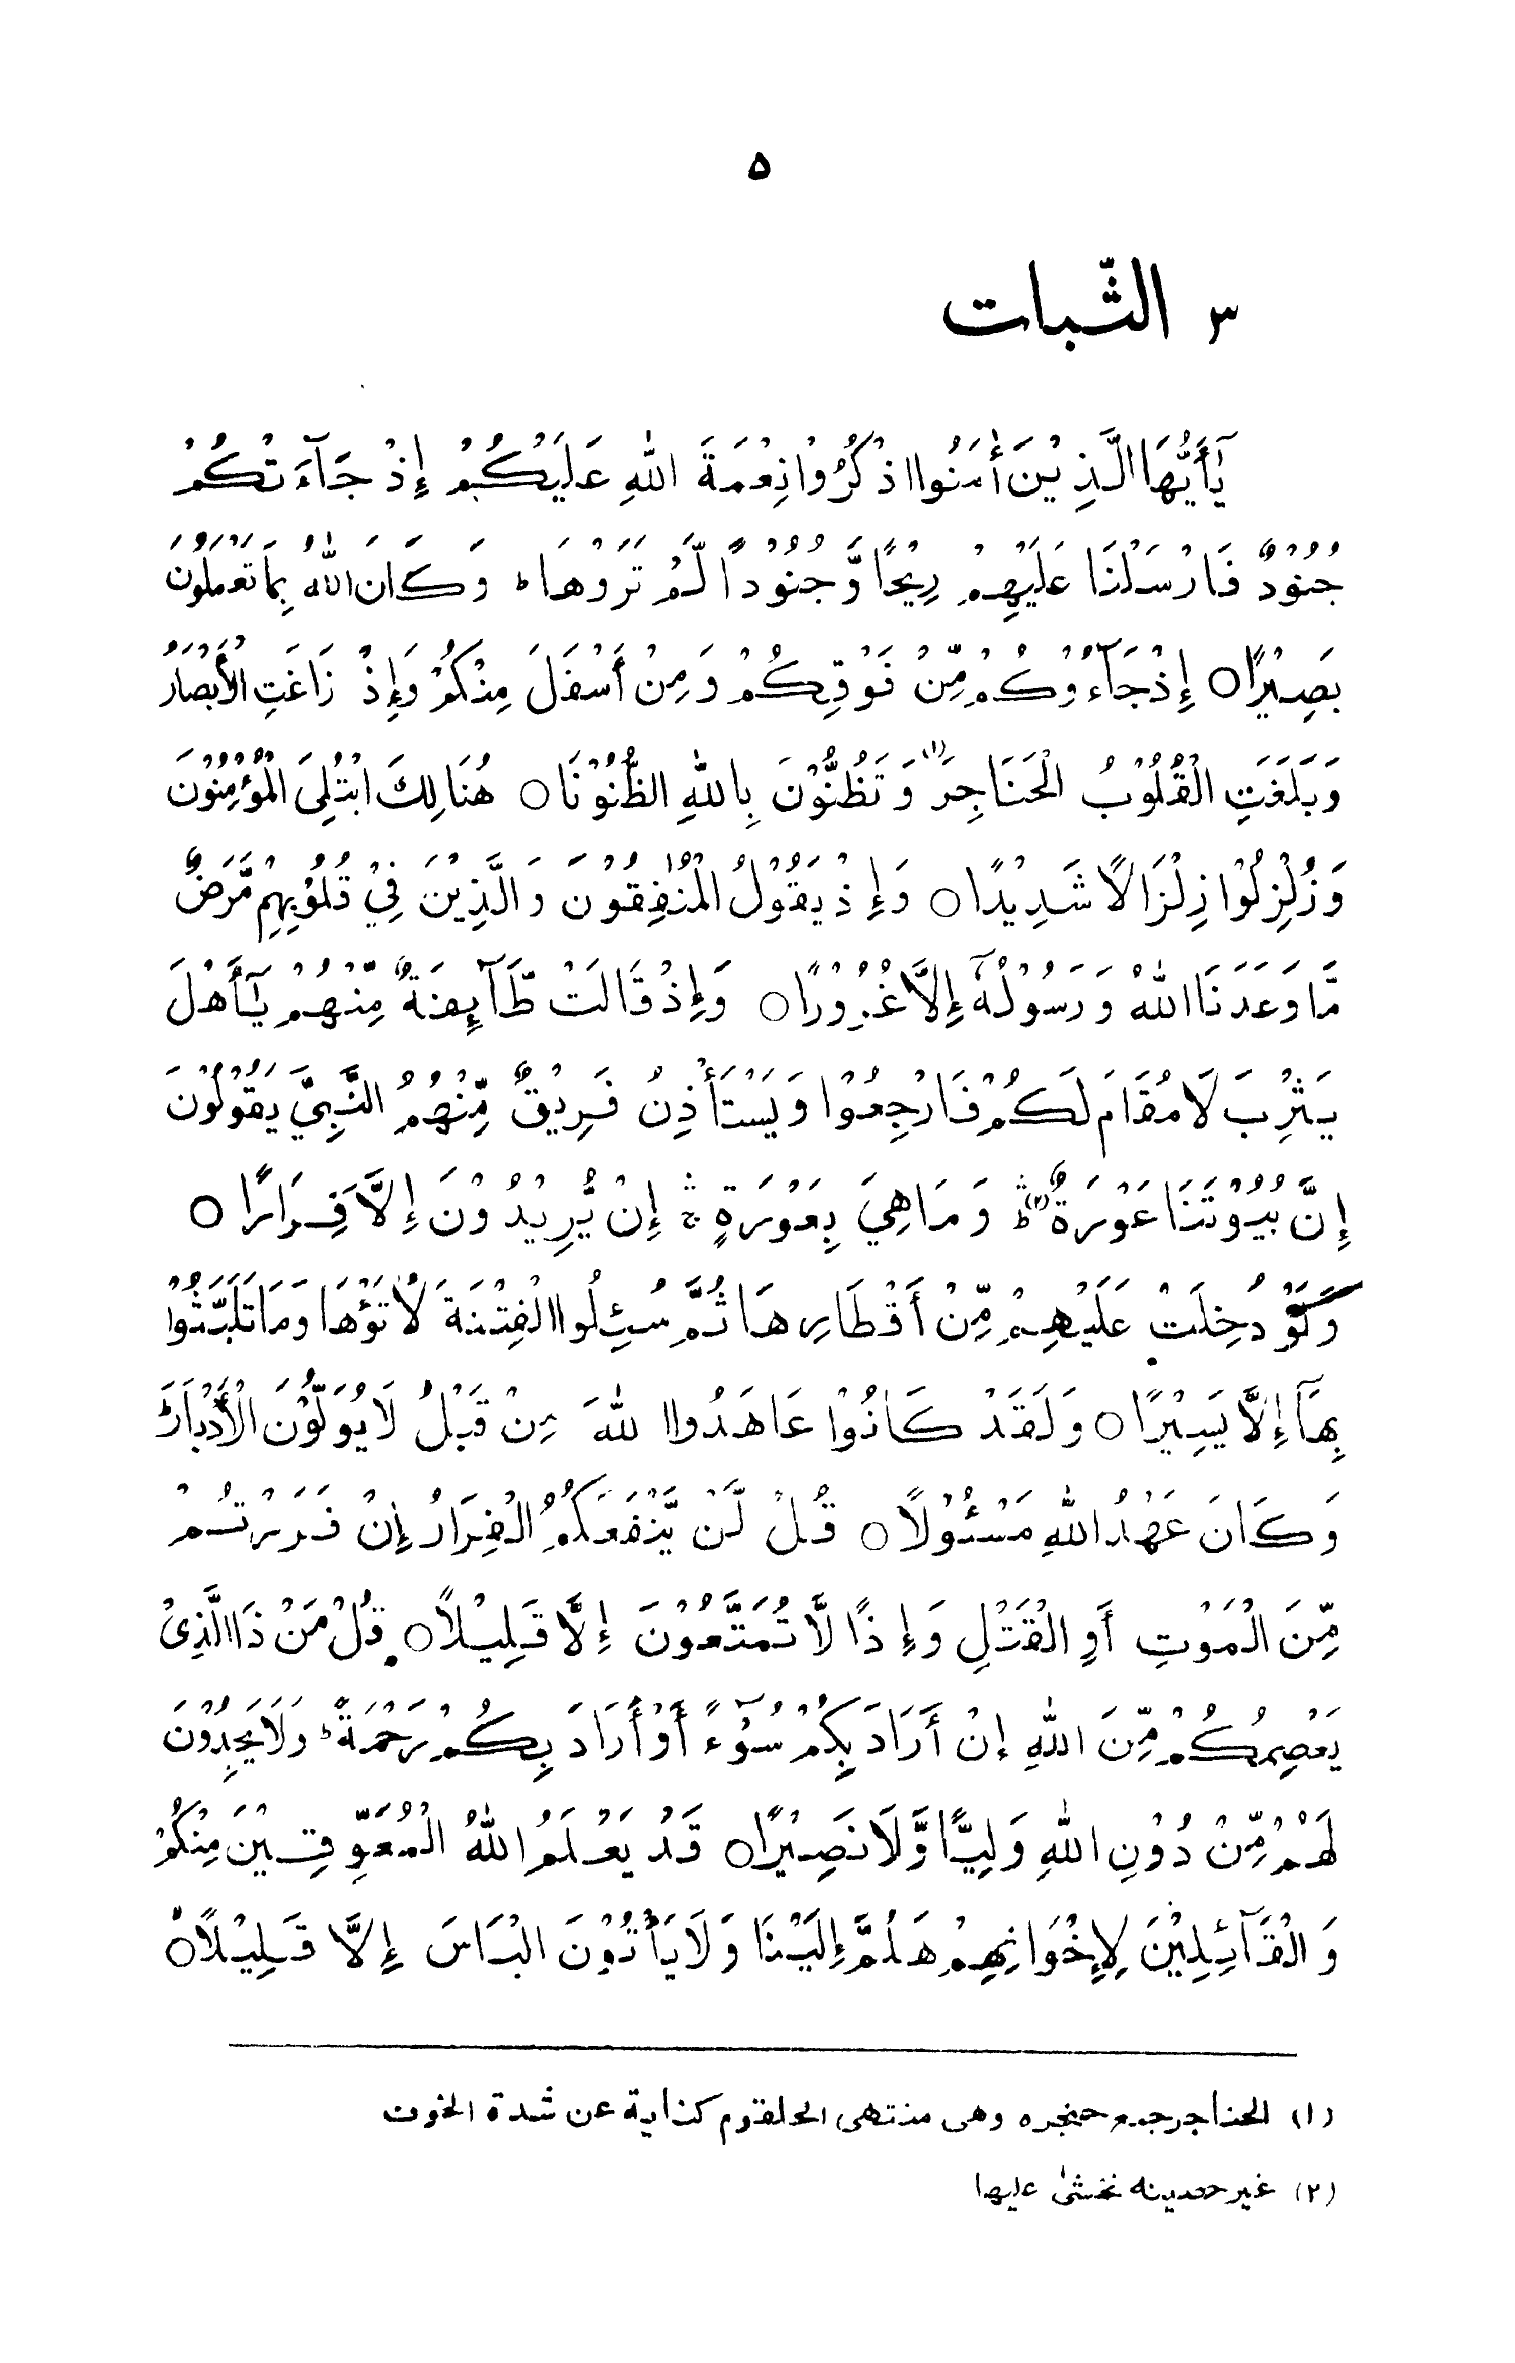 ۵
۳ الثّبات
يٰٓأَيُّهَا الَّذِيْنَ أٰمَنُوا اذْكُرُوْا نِعْمَةَ اللهِ عَلَيْكُمْ إِذْ جَآءَتْكُمْ
جُنُوْدٌ فَارْسَلْنَا عَلَيْهِمْ رِيْحًا وَّجُنُوْدًا لَّمْ تَرَوْهَا ؕ وَكَانَ اللهُ بِمَا تَعْمَلُوْنَ
بَصِيْرًا ○ إِذْ جَآءُوْكُمْ مِّنْ فَوْقِكُمْ وَمِنْ أَسْفَلَ مِنْكُمْ وَإِذْ زَاغَتِ الْأَبْصَارُ
وَبَلَغَتِ الْقُلُوْبُ الْحَنَاجِرَ (۱) وَتَظُنُّوْنَ بِاللهِ الظُّنُوْنَا ○ هُنَالِكَ ابْتُلِىَ الْمُؤْمِنُوْنَ
وَزُلْزِلُوْا زِلْزَالًا شَدِيْدًا ○ وَإِذْ يَقُوْلُ الْمُنٰفِقُوْنَ وَالَّذِيْنَ فِيْ قُلُوْبِهِمْ مَّرَضٌ
مَّا وَعَدَنَا اللهُ وَرَسُوْلُهٗٓ إِلَّا غُرُوْرًا ○ وَإِذْ قَالَتْ طَّآئِفَةٌ مِّنْهُمْ يٰٓأَهْلَ
يَثْرِبَ لَا مُقَامَ لَكُمْ فَارْجِعُوْا وَيَسْتَأْذِنُ فَرِيْقٌ مِّنْهُمُ النَّبِيَّ يَقُوْلُوْنَ
إِنَّ بُيُوْتَنَا عَوْرَةٌ (۲) ؕ وَمَا هِيَ بِعَوْرَةٍ ۚ إِنْ يُّرِيْدُوْنَ إِلَّا فِرَارًا ○
وَلَوْ دُخِلَتْ عَلَيْهِمْ مِّنْ أَقْطَارِهَا ثُمَّ سُئِلُوا الْفِتْنَةَ لَاٰتَوْهَا وَمَا تَلَبَّثُوْا
بِهَآ إِلَّا يَسِيْرًا ○ وَلَقَدْ كَانُوْا عَاهَدُوا اللهَ مِنْ قَبْلُ لَا يُوَلُّوْنَ الْأَدْبَارَ ؕ
وَكَانَ عَهْدُ اللهِ مَسْئُوْلًا ○ قُلْ لَّنْ يَّنْفَعَكُمُ الْفِرَارُ إِنْ فَرَرْتُمْ
مِّنَ الْمَوْتِ أَوِ الْقَتْلِ وَإِذًا لَّا تُمَتَّعُوْنَ إِلَّا قَلِيْلًا ○ قُلْ مَنْ ذَا الَّذِىْ
يَعْصِمُكُمْ مِّنَ اللهِ إِنْ أَرَادَ بِكُمْ سُوْٓءً أَوْ أَرَادَ بِكُمْ رَحْمَةً ؕ وَلَا يَجِدُوْنَ
لَهُمْ مِّنْ دُوْنِ اللهِ وَلِيًّا وَّلَا نَصِيْرًا ○ قَدْ يَعْلَمُ اللهُ الْمُعَوِّقِيْنَ مِنْكُمْ
وَالْقَآئِلِيْنَ لِإِخْوَانِهِمْ هَلُمَّ إِلَيْنَا وَلَا يَأْتُوْنَ الْبَاسَ إِلَّا قَلِيْلًا ○
(۱) الحناجر جمع حنجره وهى منتهى الحلقوم كناية عن شدة الخوف
(۲) غير حصينه نخشىٰ عليها